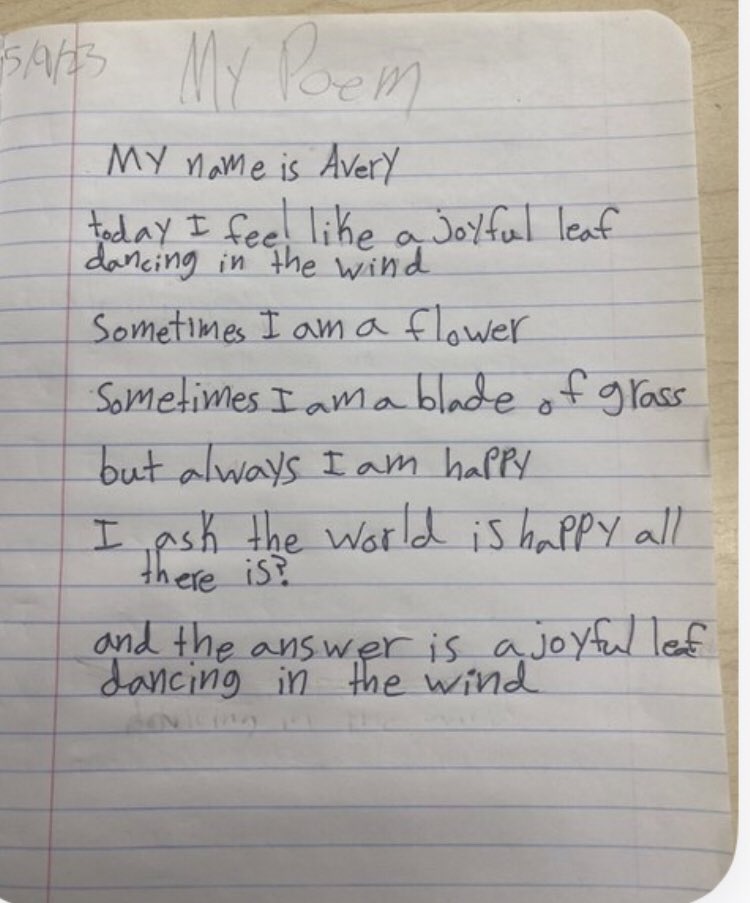 5/9/23
My Poem
My name is Avery
today I feel like a joyful leaf
dancing in the wind
Sometimes I am a flower
Sometimes I am a blade of grass
but always I am happy
I ask the world is happy all
there is?
and the answer is a joyful lef
dancing in the wind